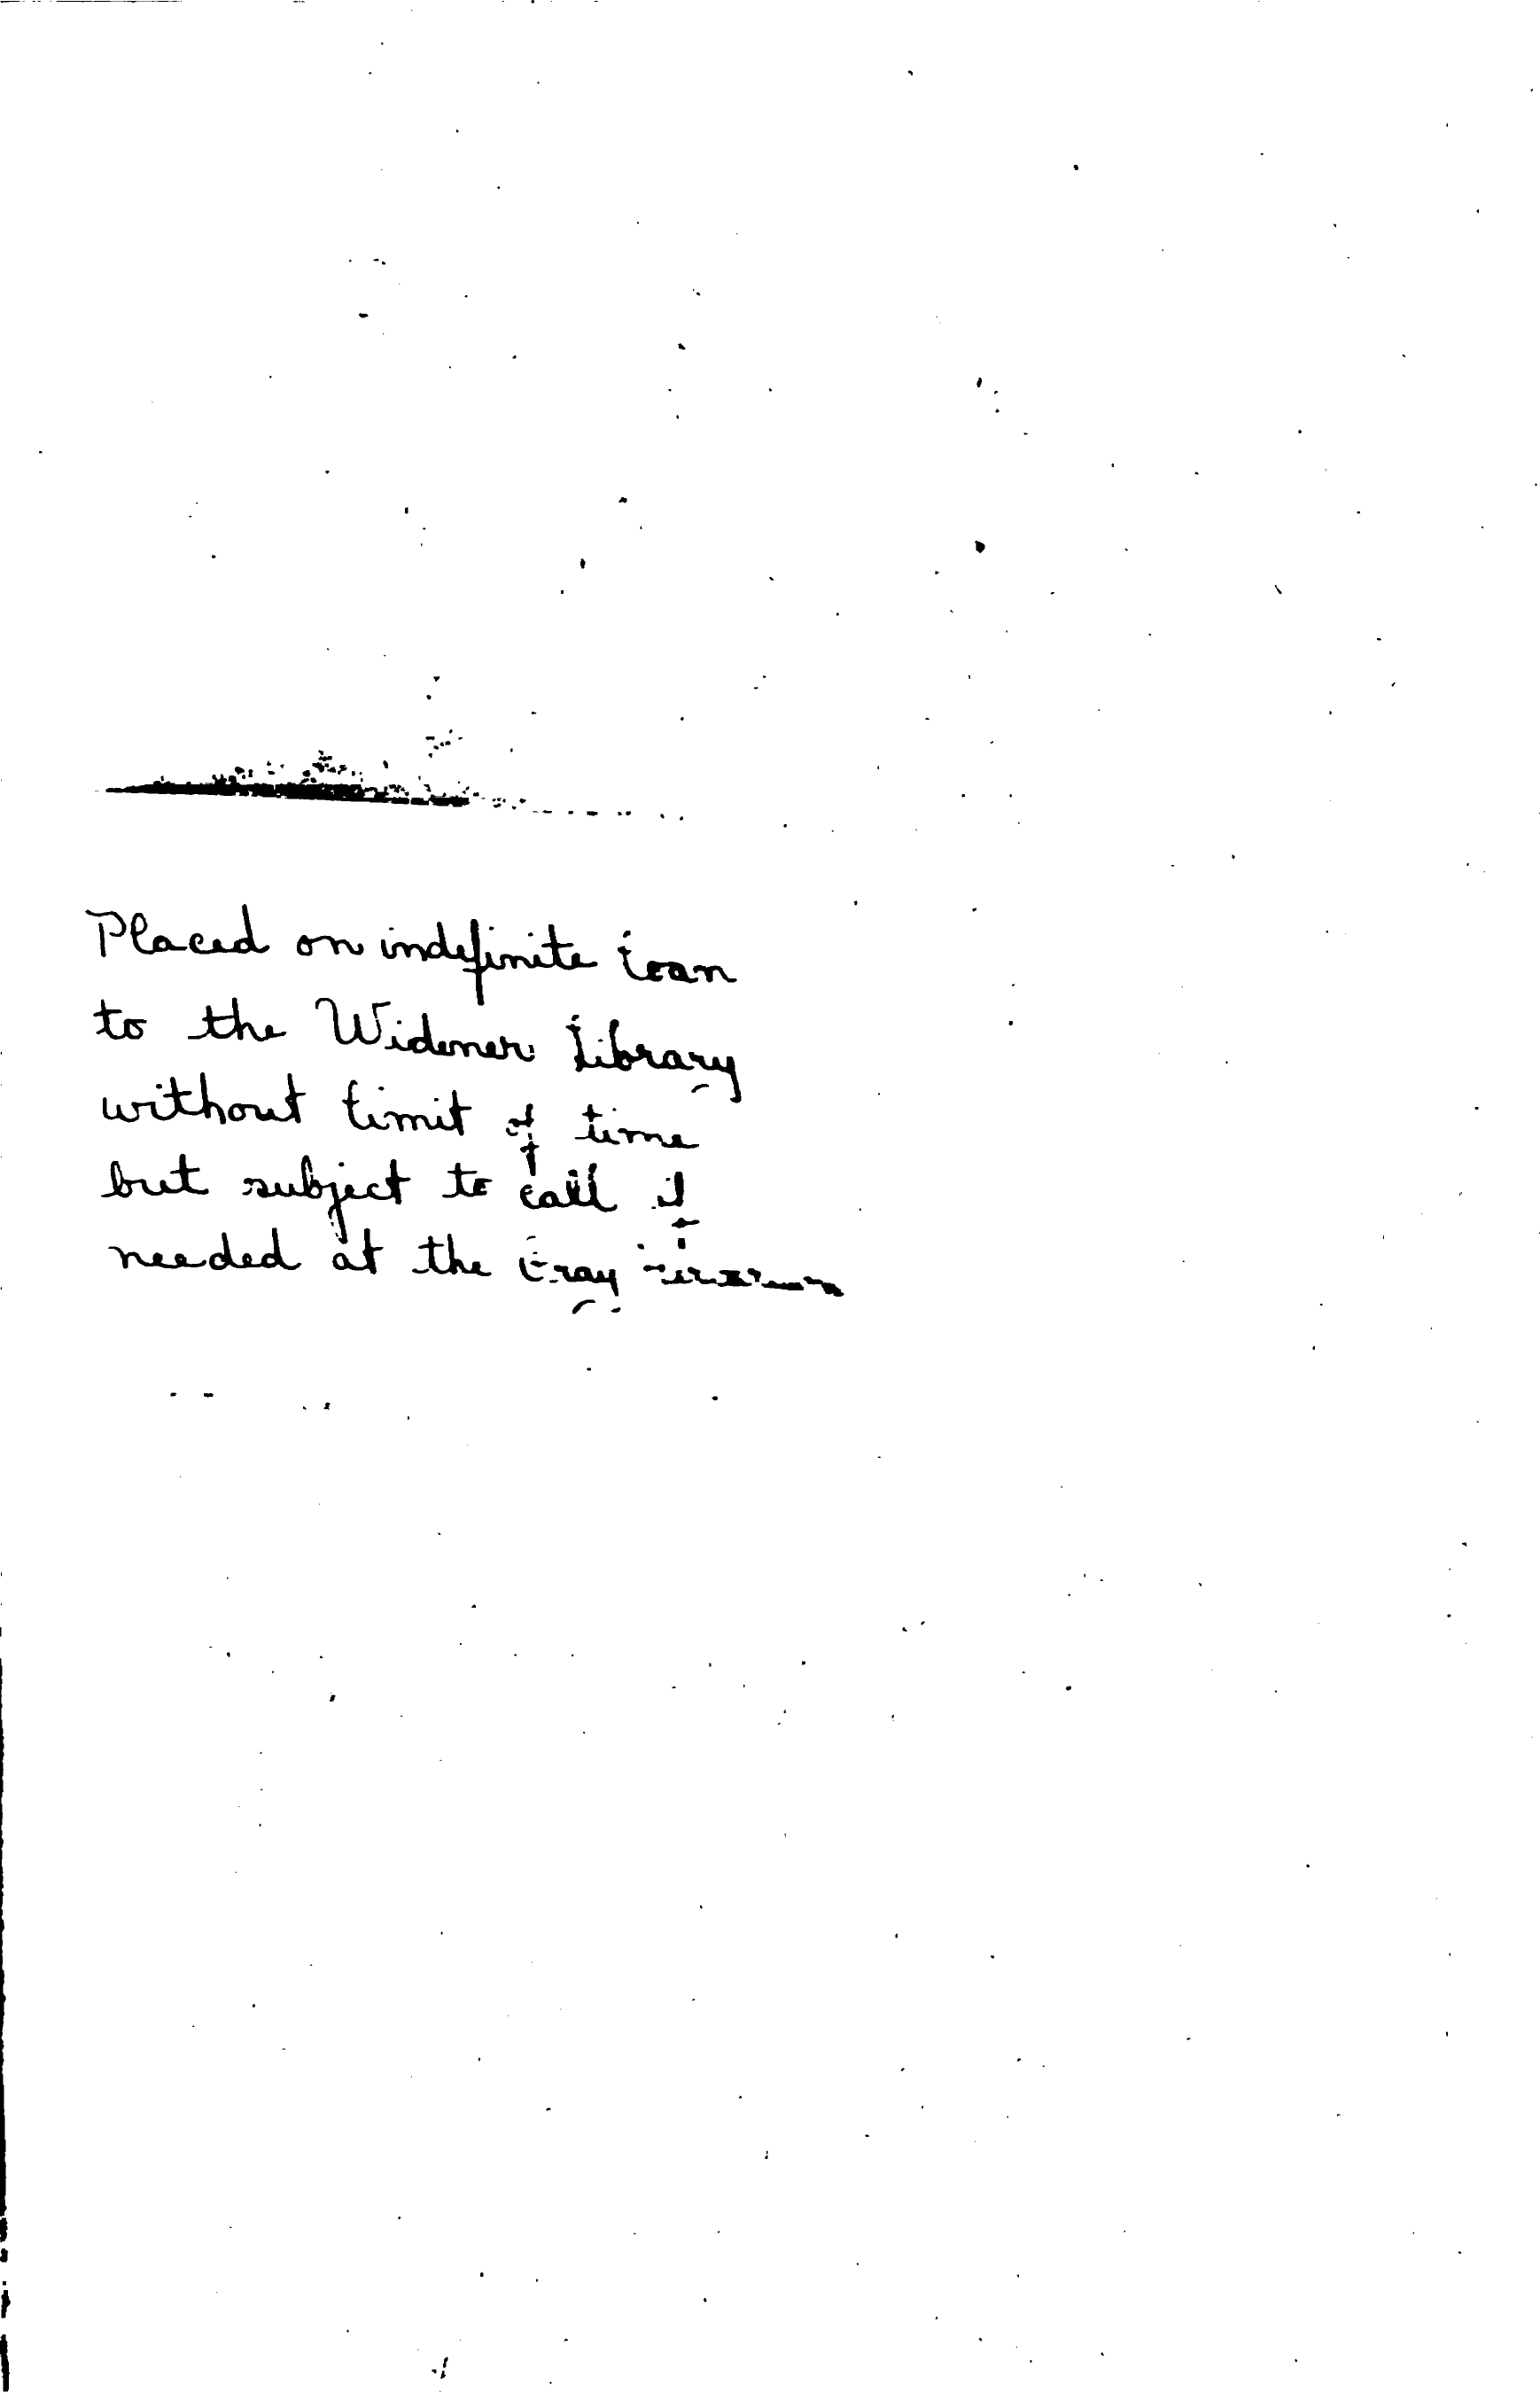 Placed on indefinite loan
to the Widener Library
without limit of time
but subject to call if
needed at the Gray